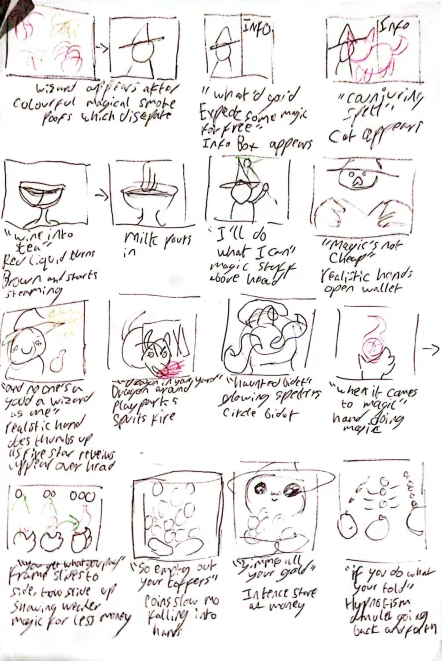 INFO
Info
wizard appears after
colourful magical smoke
poofs which disepate
"what'd you
Expect some magic
for free"
Info Box appears
"counjuring
spell"
Cat appears
"wine into
tea"
Red liquid turns
Brown and starts
steaming
Milk pours
in
"I'll do
what I can"
magic stuff
above head
"Magic's not
cheap"
realistic hands
open wallet
"and no one's a
good a wizard
as me"
realistic hand
does thumbs up
as five star reveiws
appear over head
"Dragon in your yard"
Dragon around
play parks
spits fire
"haunted bidet"
glowing specters
circle bidet
"when it comes
to magic"
hand doing
magic
"you get what you pay"
Frame slides to
side, to
showing weirder
magic for less money
"So empty out
your coffers"
coins slow mo
falling into
hands
"Gimme all
your gold"
Intence stare
at money
"if you do what
your told"
Hypnotism
amulet going
back and forth